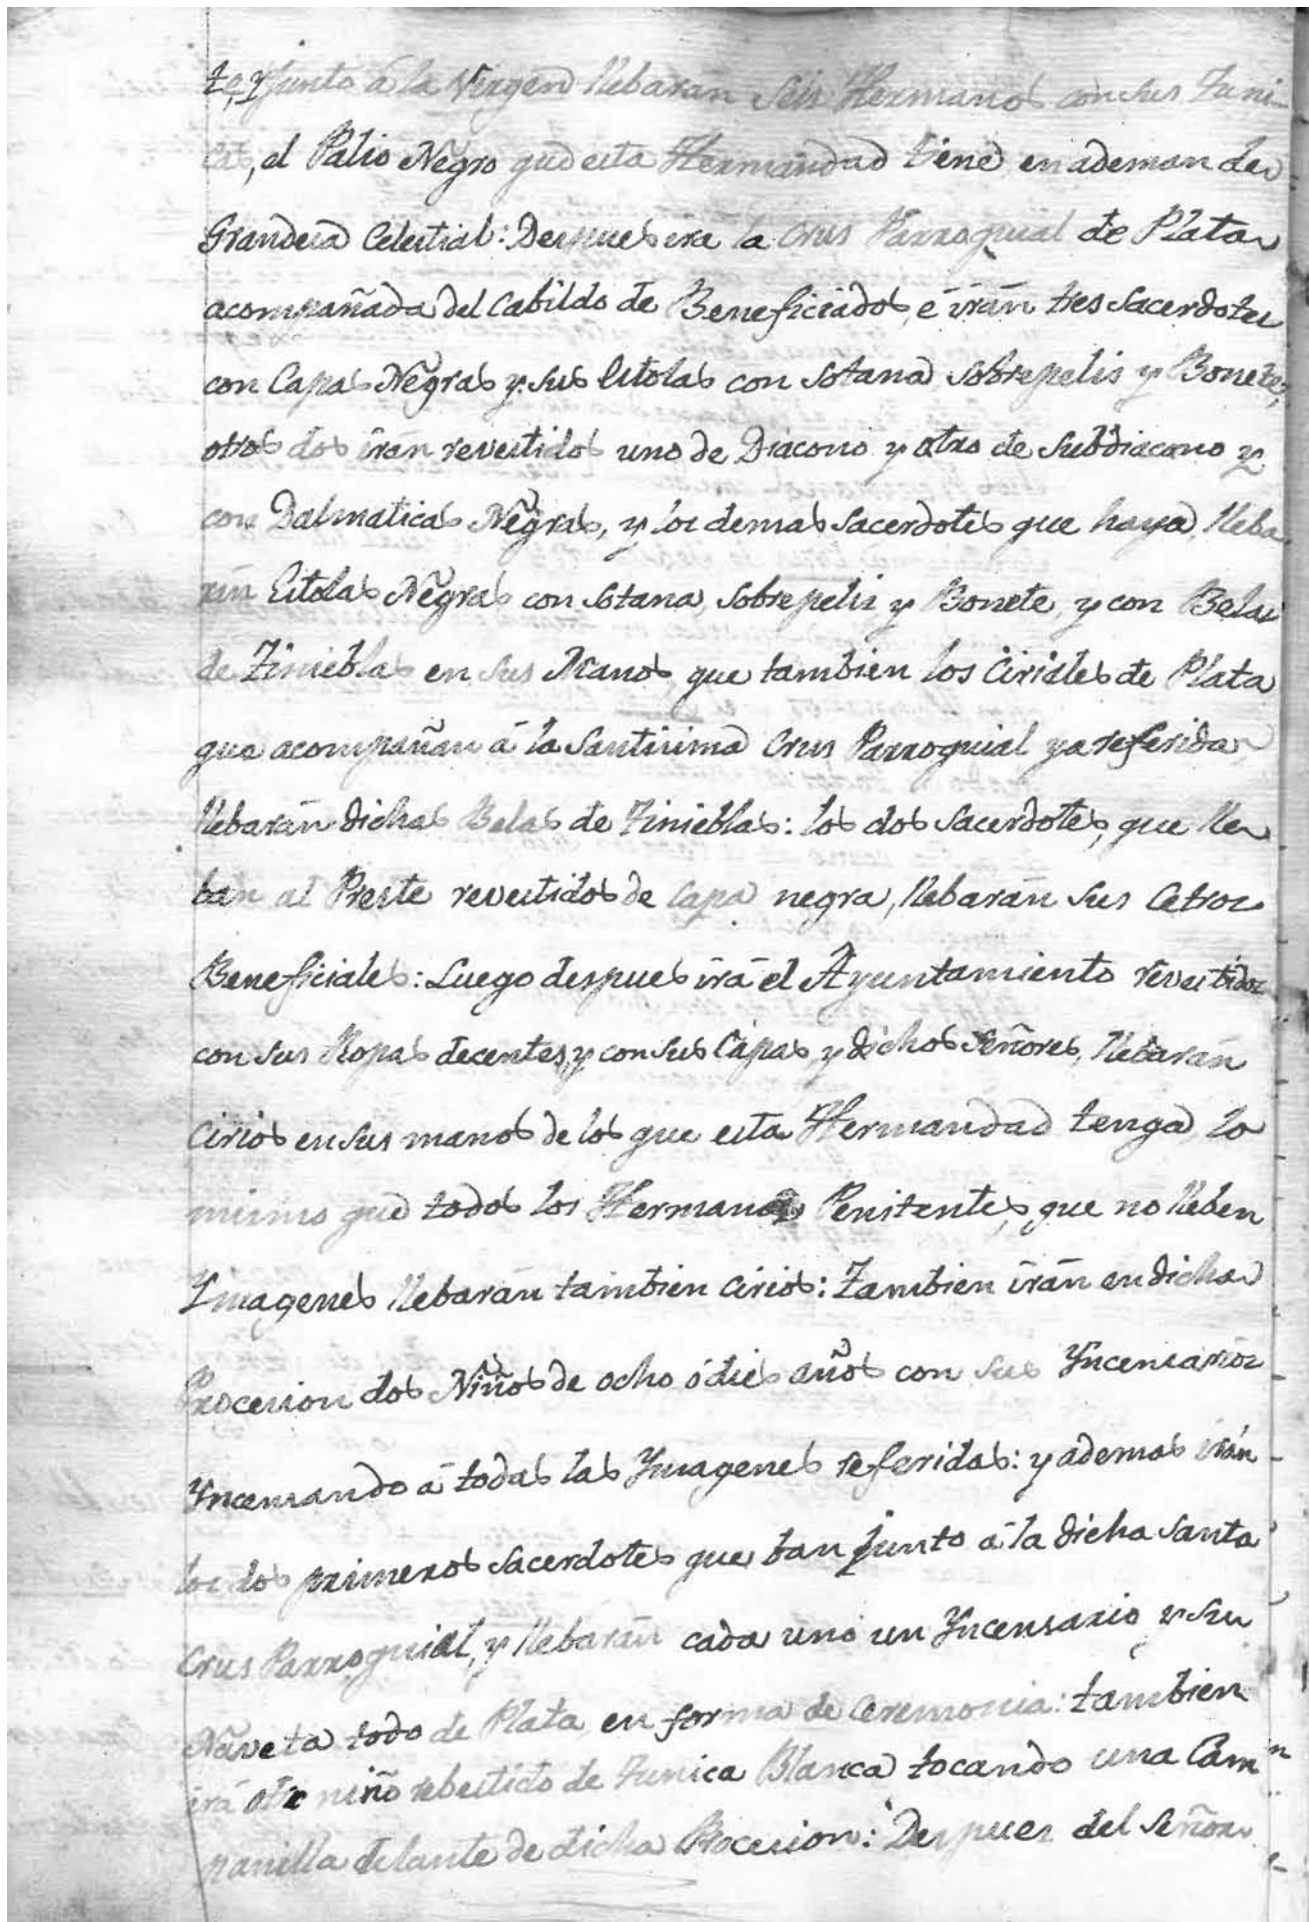 te, y junto â la Vergen llebaran Seis Hermanos con sus Tuni-
cas, el Palio Negro que esta Hermandad tiene en ademan de
Grandesa Celestial: Despues ira la Crus Parroquial de Plata
acompañada del Cabildo de Beneficiados, é irán tres Sacerdotes
con Capas Negras y sus Estolas con Sotana Sobrepelis y Bonete,
otros dos irán revestidos uno de Diacono y otro de Subdiacono y
con Dalmaticas Negras, y los demas Sacerdotes que haya, lleba
rán Estolas Negras con Sotana, Sobrepelis y Bonete, y con Belas
de Tinieblas en sus Manos que tambien los Ciriales de Plata
que acompañan á la Santisima Crus Parroquial ya referida
llebarán dichas Belas de Tinieblas: los dos Sacerdotes, que lle
ban al Preste revestidos de Capa negra, llebarán sus Cetros
Beneficiales: Luego despues irá el Ayuntamiento revestidos
con sus Ropas decentes, y con sus Capas, y dichos Señores, llebarán
Cirios en sus manos de los que esta Hermandad tenga, lo
mismo que todos los Hermanos Penitentes, que no lleben
Ymagenes llebarán tambien Cirios: Tambien irán en dicha
Procesion dos Niños de ocho ó dies años con sus Yncensarios
Yncensando á todas las Ymagenes referidas: y ademas irán
los dos primeros Sacerdotes que ban junto á la dicha Santa
Crus Parroquial, y llebarán cada uno un Yncensario y su
Naveta todo de Plata, en forma de Ceremonia: tambien
irá otro niño rebestido de Tunica Blanca tocando una Cam
panilla delante de dicha Procesion: Despues del Señor